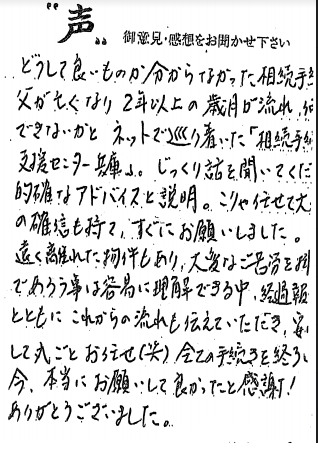 "声" 御意見・感想をお聞かせ下さい
どうして良いものか分からなかった相続手続
父が亡くなり2年以上の歳月が流れ、何
できないかとネットで巡り着いた「相続手続
支援センター兵庫」。じっくり話を聞いてくだ
的確なアドバイスと説明。こりゃ任せて大
の確信も持て、すぐにお願いしました。
遠く離れた物件もあり、大変なご苦労を掛
であろう事は容易に理解できる中、経過報
とともにこれからの流れも伝えていただき、安
して丸ごとお任せ(笑)全ての手続きを終え
今、本当にお願いして良かったと感謝!
ありがとうございました。